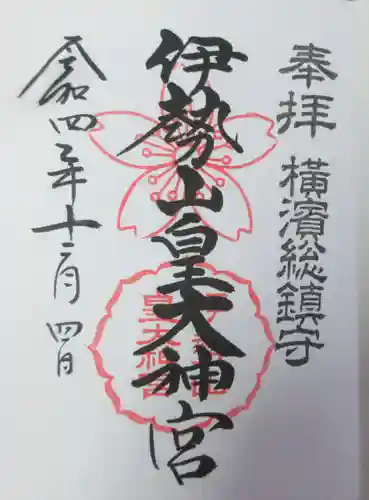 奉拝　横濱総鎮守
伊勢山皇大神宮
令和四年十二月四日